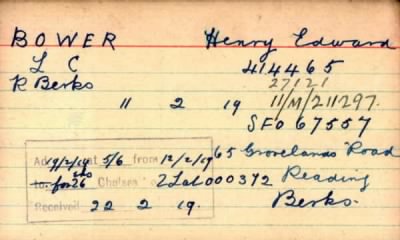 BOWER Henry Edward
L C 414465
R Berks 27121
11 2 19 11/M/211297.
SFO 67557
65 Grovelands Road
Reading
Berks.
Ad 19/2/19 at 5/6 from 12/2/19
to for 26 Chelsea 2 Lab 000372
Received 22 2 19.